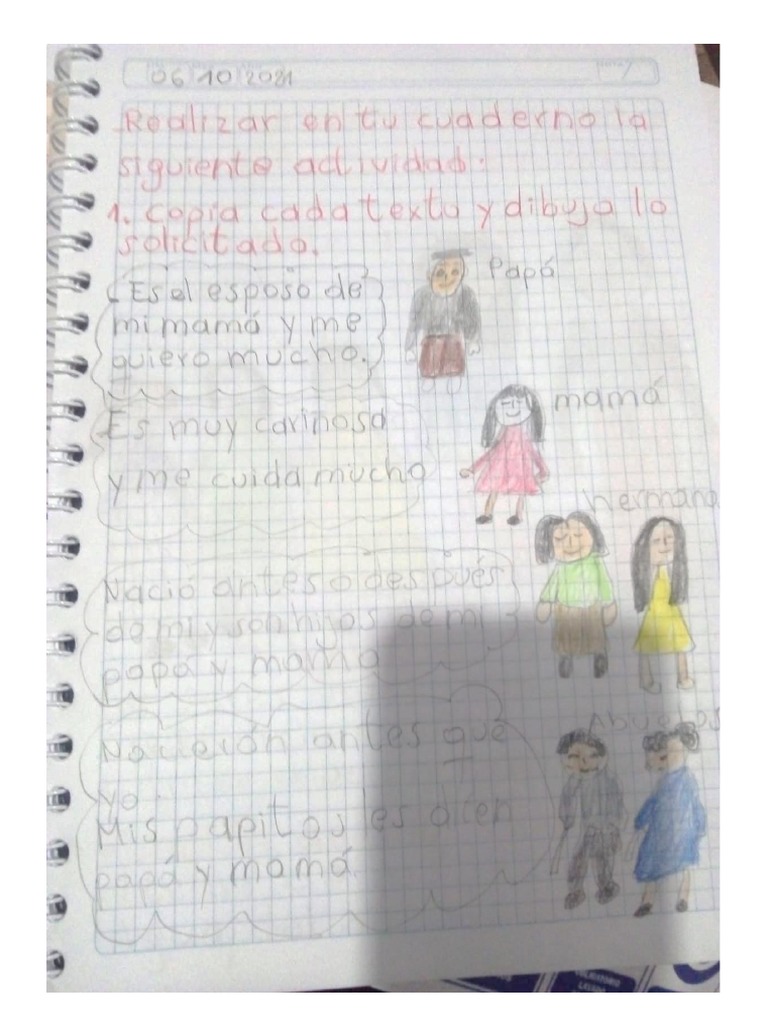 06 10 2021
Realizar en tu cuaderno la
siguiente actividad:
1. Copia cada texto y dibuja lo
solicitado.
Es el esposo de
mi mamá y me
quiero mucho.
Papá
Es muy cariñosa
y me cuida mucho
mamá
Nació antes o después
de mi y son hijos de mi
papá y mamá
hermana
Nacierón antes que
yo.
Mis papitos les dicen
papá y mamá.
Abuelos